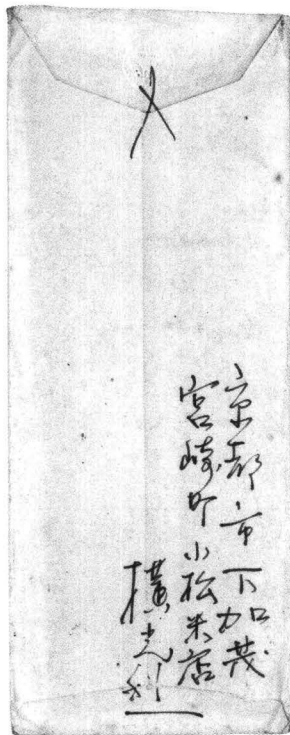 〆
京都市下加茂
宮崎町小松米店
横光利一